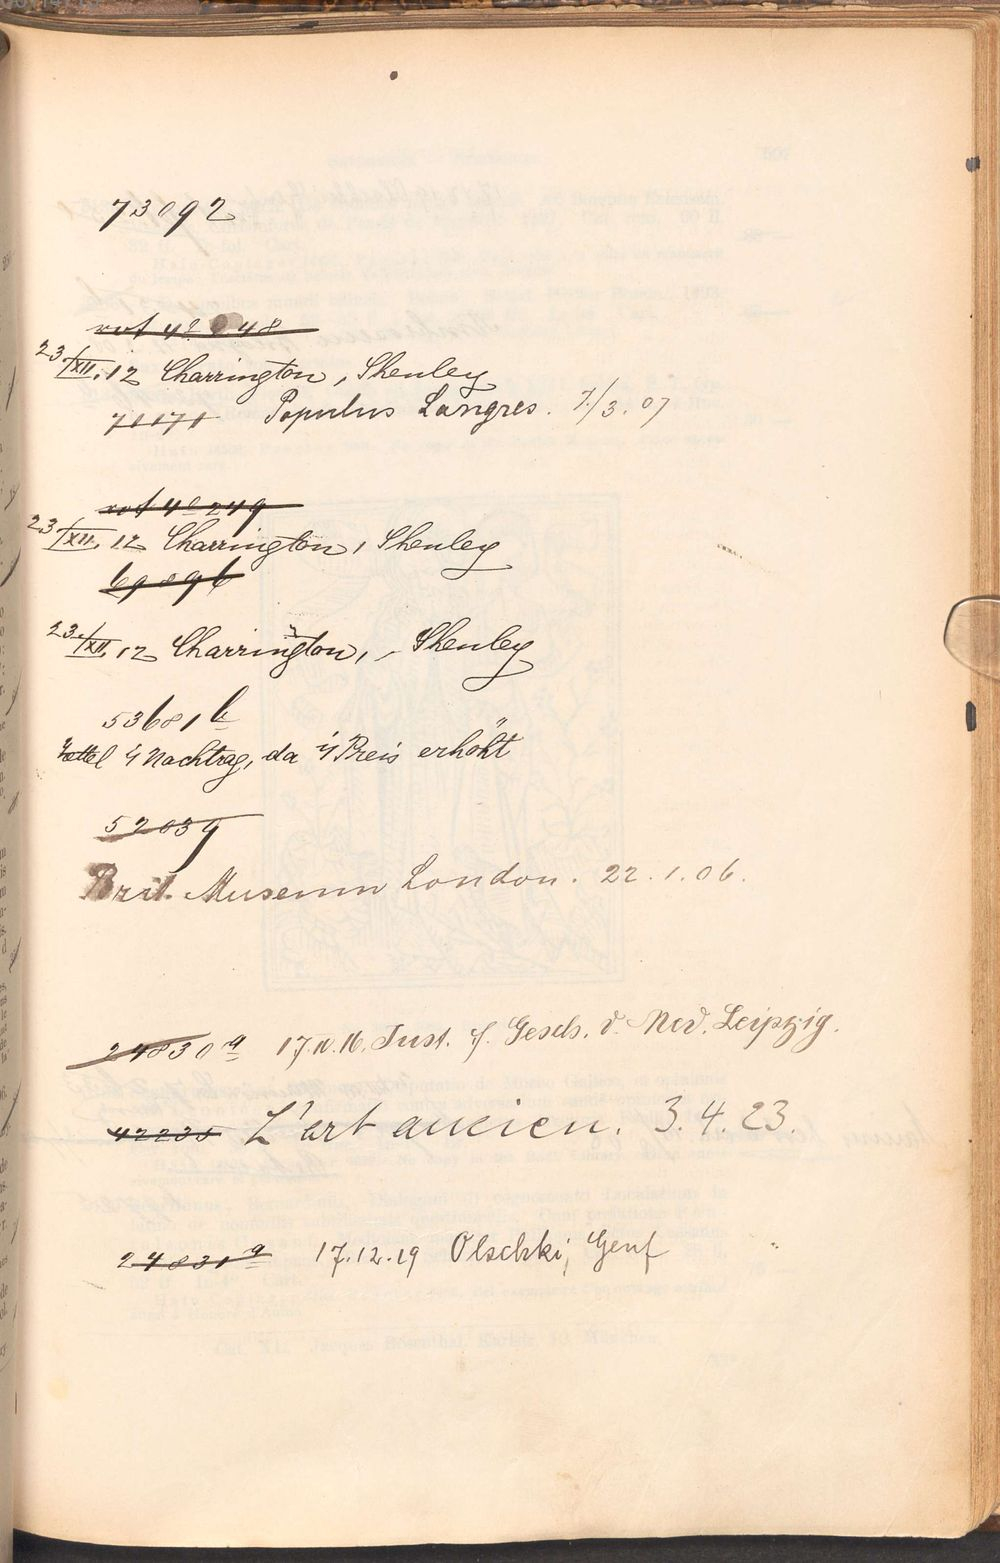 73092
rot 42 48
23/XII. 12 Charrington, Shenley
71171 Populus Langres. 7./3. 07
rot 4249
23/XII. 12 Charrington, Shenley
69896
23./XII. 12 Charrington, Shenley
53681 b
Zettel Nachtrag, da Preis erhöht
52039
Brit. Museum London. 22.1.06.
24830 a 17.10.16. Inst. f. Gesch. d. Med. Leipzig.
42235 L'art ancien. 3.4.23.
24831 a 17.12.19 Olschki, Genf